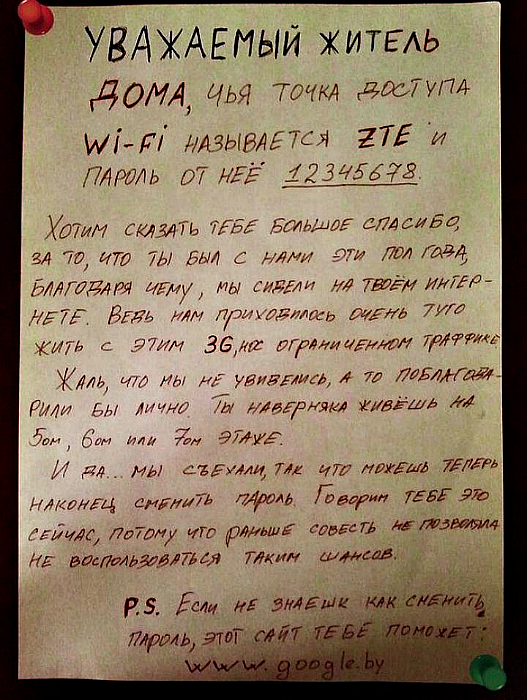 УВАЖАЕМЫЙ ЖИТЕЛЬ
ДОМА, ЧЬЯ ТОЧКА ДОСТУПА
Wi-Fi НАЗЫВАЕТСЯ ZTE И
ПАРОЛЬ ОТ НЕЁ 12345678.
ХОТИМ СКАЗАТЬ ТЕБЕ БОЛЬШОЕ СПАСИБО,
ЗА ТО, ЧТО ТЫ БЫЛ С НАМИ ЭТИ ПОЛ ГОДА,
БЛАГОДАРЯ ЧЕМУ, МЫ СИДЕЛИ НА ТВОЁМ ИНТЕР-
НЕТЕ. ВЕДЬ НАМ ПРИХОДИЛОСЬ ОЧЕНЬ ТУГО
ЖИТЬ С ЭТИМ 3G, ОГРАНИЧЕННОМ ТРАФФИКЕ.
ЖАЛЬ, ЧТО МЫ НЕ УВИДЕЛИСЬ, А ТО ПОБЛАГОДА-
РИЛИ БЫ ЛИЧНО. ТЫ НАВЕРНЯКА ЖИВЁШЬ НА
5ом, 6ом ИЛИ 7ом ЭТАЖЕ.
И ДА... МЫ СЪЕХАЛИ, ТАК ЧТО МОЖЕШЬ ТЕПЕРЬ
НАКОНЕЦ СМЕНИТЬ ПАРОЛЬ. ГОВОРИМ ТЕБЕ ЭТО
СЕЙЧАС, ПОТОМУ ЧТО РАНЬШЕ СОВЕСТЬ НЕ ПОЗВОЛЯЛА
НЕ ВОСПОЛЬЗОВАТЬСЯ ТАКИМ ШАНСОВ.
P.S. ЕСЛИ НЕ ЗНАЕШЬ КАК СМЕНИТЬ
ПАРОЛЬ, ЭТОТ САЙТ ТЕБЕ ПОМОЖЕТ:
www.google.by